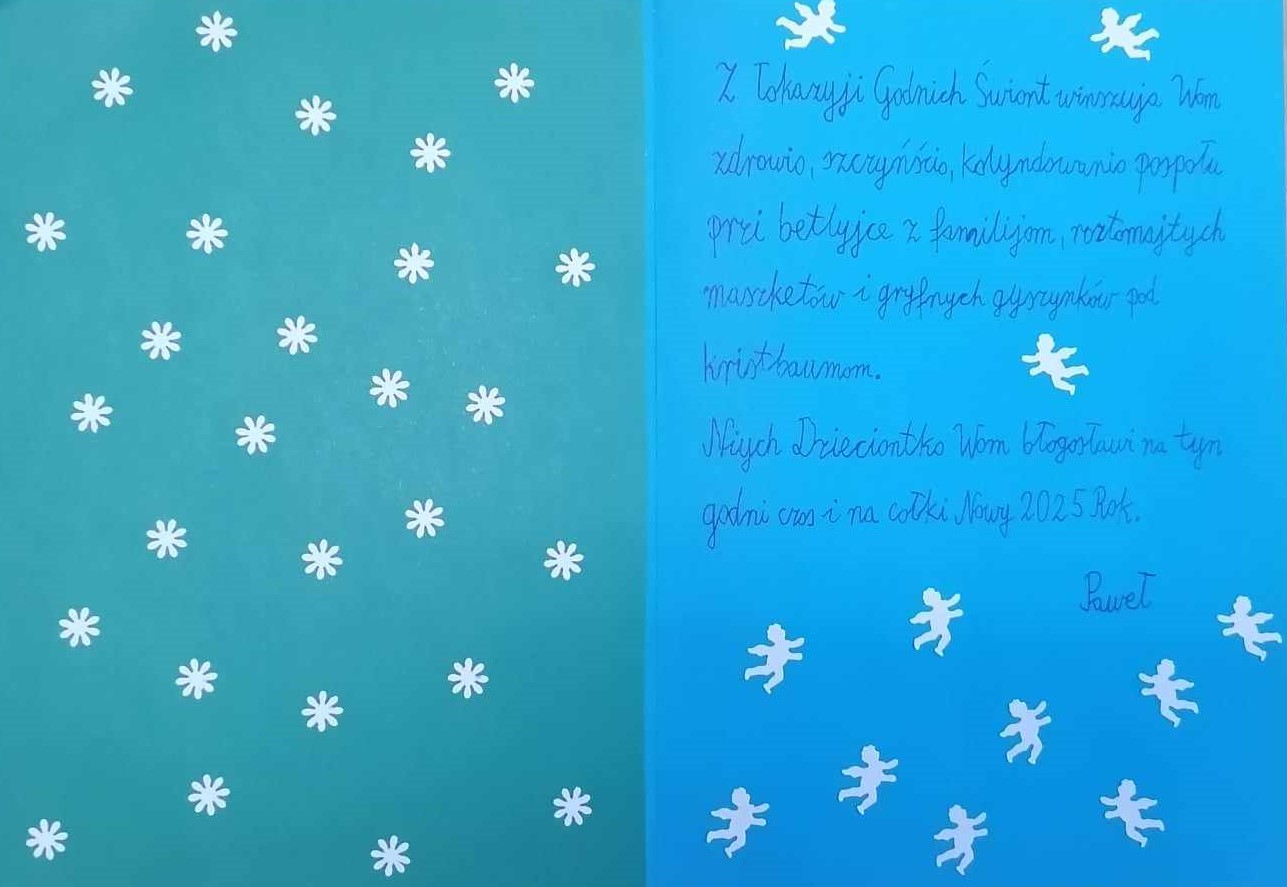 Z Uokazyji Godnich Świont winszuja Wom
zdrowio, szczyńścio, kolyndowanio pospołu
przi betlyjce z familijom, roztomajtych
maszketów i gryfnych gyszynków pod
kristbaumom.
Niych Dzieciontko Wom błogosławi na tyn
godni czos i na cołki Nowy 2025 Rok.
Paweł